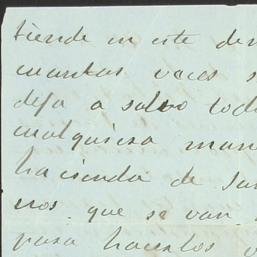 tiende en este der
cuantas veces s
deja a salvo tod
cualquiera man
hacienda de Sa
nos que se van
para hacerlos v